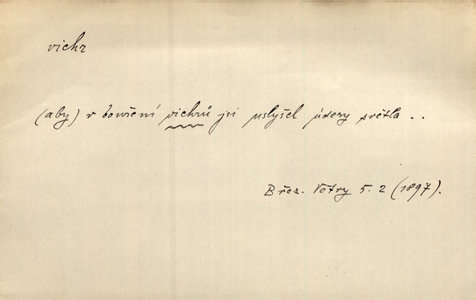 vichr
(aby) v bouření vichrů jsi uslyšel údery světla ..
Břez. Větry 5. 2 (1897).